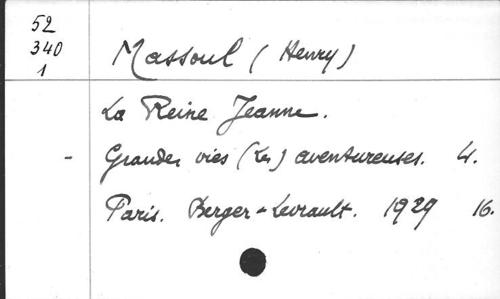 52
340
1
Massoul (Henry)
La Reine Jeanne.
- Grandes vies (Les) aventureuses. 4.
Paris. Berger-Levrault. 1929 16.